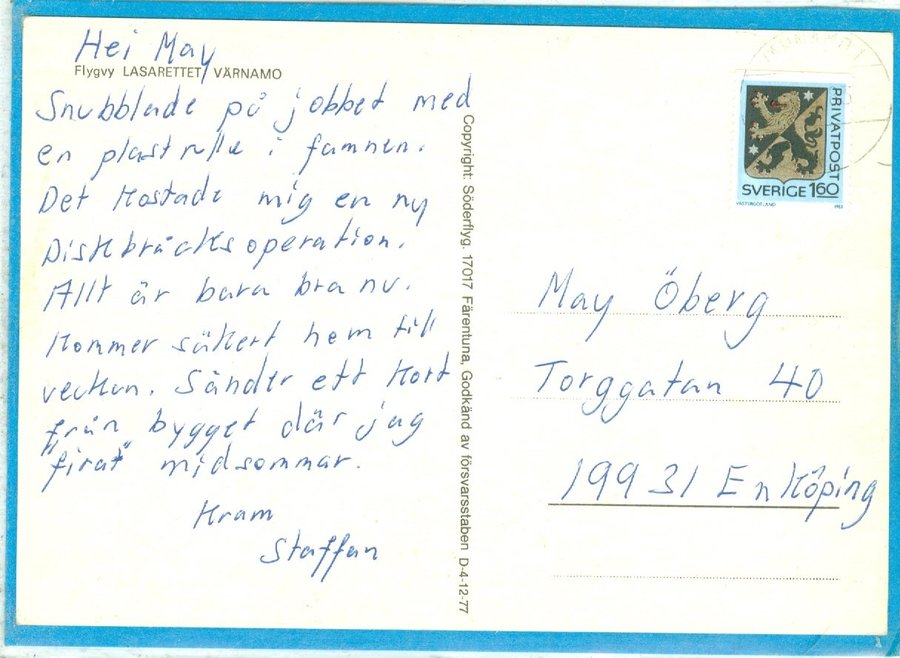 Hei May
Flygvy LASARETTET, VÄRNAMO
Snubblade på jobbet med
en plastrulle i famnen.
Det kostade mig en ny
Diskbråcksoperation.
Allt är bara bra nu.
Kommer säkert hem till
veckan. Sänder ett kort
från bygget där jag
"firat" midsommar.
Kram
Staffan
Copyright: Söderflyg. 17017 Färentuna, Godkänd av försvarsstaben D-4-12-77
PRIVATPOST
SVERIGE 160
VÄSTERGÖTLAND 1983
May Öberg
Torggatan 40
199 31 Enköping